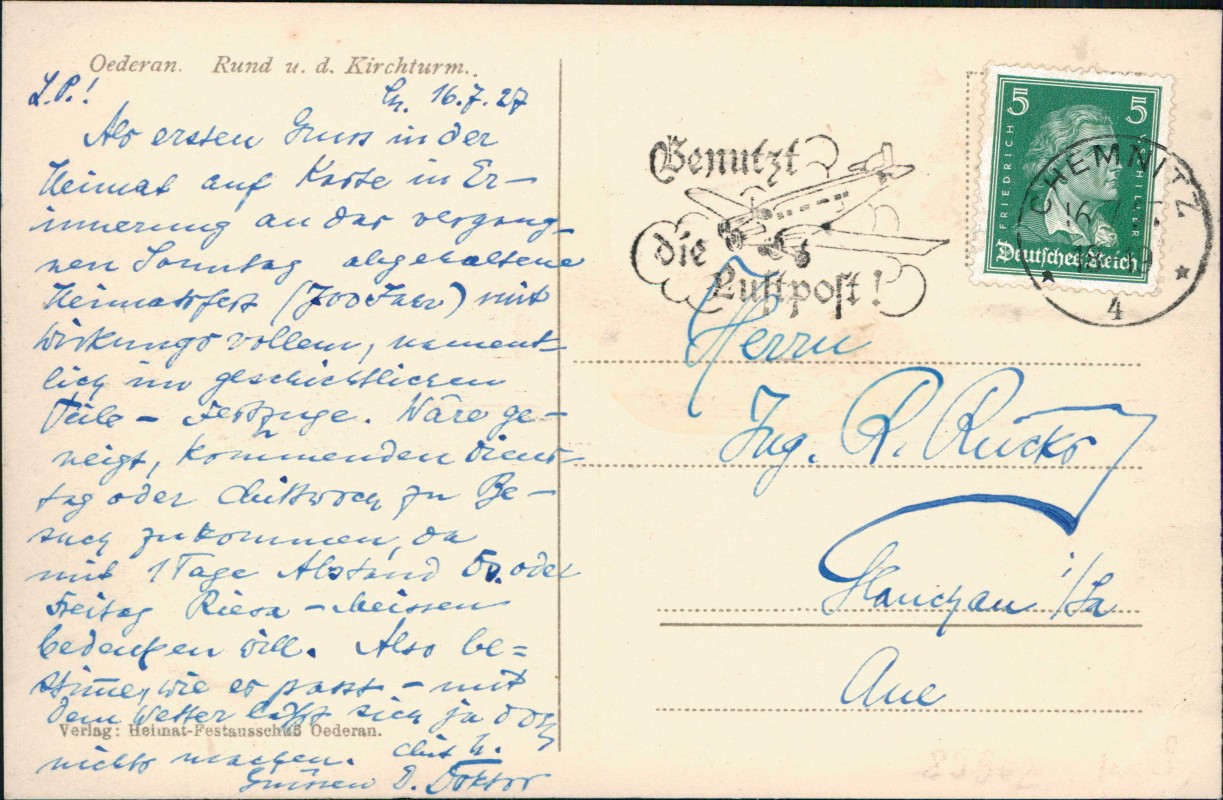 Oederan. Rund u. d. Kirchturm.
L.P.! Ch. 16.7.27
Als ersten Gruss in der
Heimat auf Karte in Er-
innerung an das vergang-
nen Sonntag abgehaltene
Heimatsfest (700 Jahr) mit
wirkungsvollem, nament-
lich im geschichtlichen
Teile - Festzuge. Wäre ge-
neigt, kommenden Diens-
tag oder Mittwoch zu Be-
such zu kommen, da
mit 1 Tage Abstand Do. oder
Freitag Riesa - Meissen
bedenken will. Also be-
stimme, wie es passt - mit
dem Wetter lässt sich ja doch
nichts machen. Mit h.
Grüssen D. Doktor
Verlag: Heimat-Festausschuß Oederan.
Benutzt
die
Luftpost!
5 5
FRIEDRICH V. SCHILLER
Deutsches Reich
CHEMNITZ
4
Herrn
Ing. R. Rücks
Glauchau i/Sa
Aue